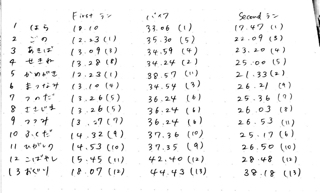 Firstラン バイク Secondラン
1 はら 18.10 33.06 (1) 17.47 (1)
2 ごの 12.23 (1) 35.30 (5) 22.09 (3)
3 あきば 13.09 (3) 34.59 (4) 23.20 (4)
4 せきね 13.28 (8) 34.24 (2) 25.00 (5)
5 かめがき 12.23 (1) 38.57 (11) 21.33 (2)
6 まつなみ 13.10 (4) 34.54 (3) 26.21 (9)
7 つのだ 13.26 (5) 36.24 (6) 25.36 (7)
8 13.26 (5) 36.24 (6) 26.03 (8)
9 つつみ (7) 36.24 (6) 26.53 (11)
10 ふくだ 14.32 (9) 37.36 (10) 25.17 (6)
11 14.53 (10) 37.35 (9) 26.50 (10)
12 こばやし 15.45 (11) 42.40 (12) 28.48 (12)
13 おぐり 18.07 (12) 44.43 (13) 38.18 (13)